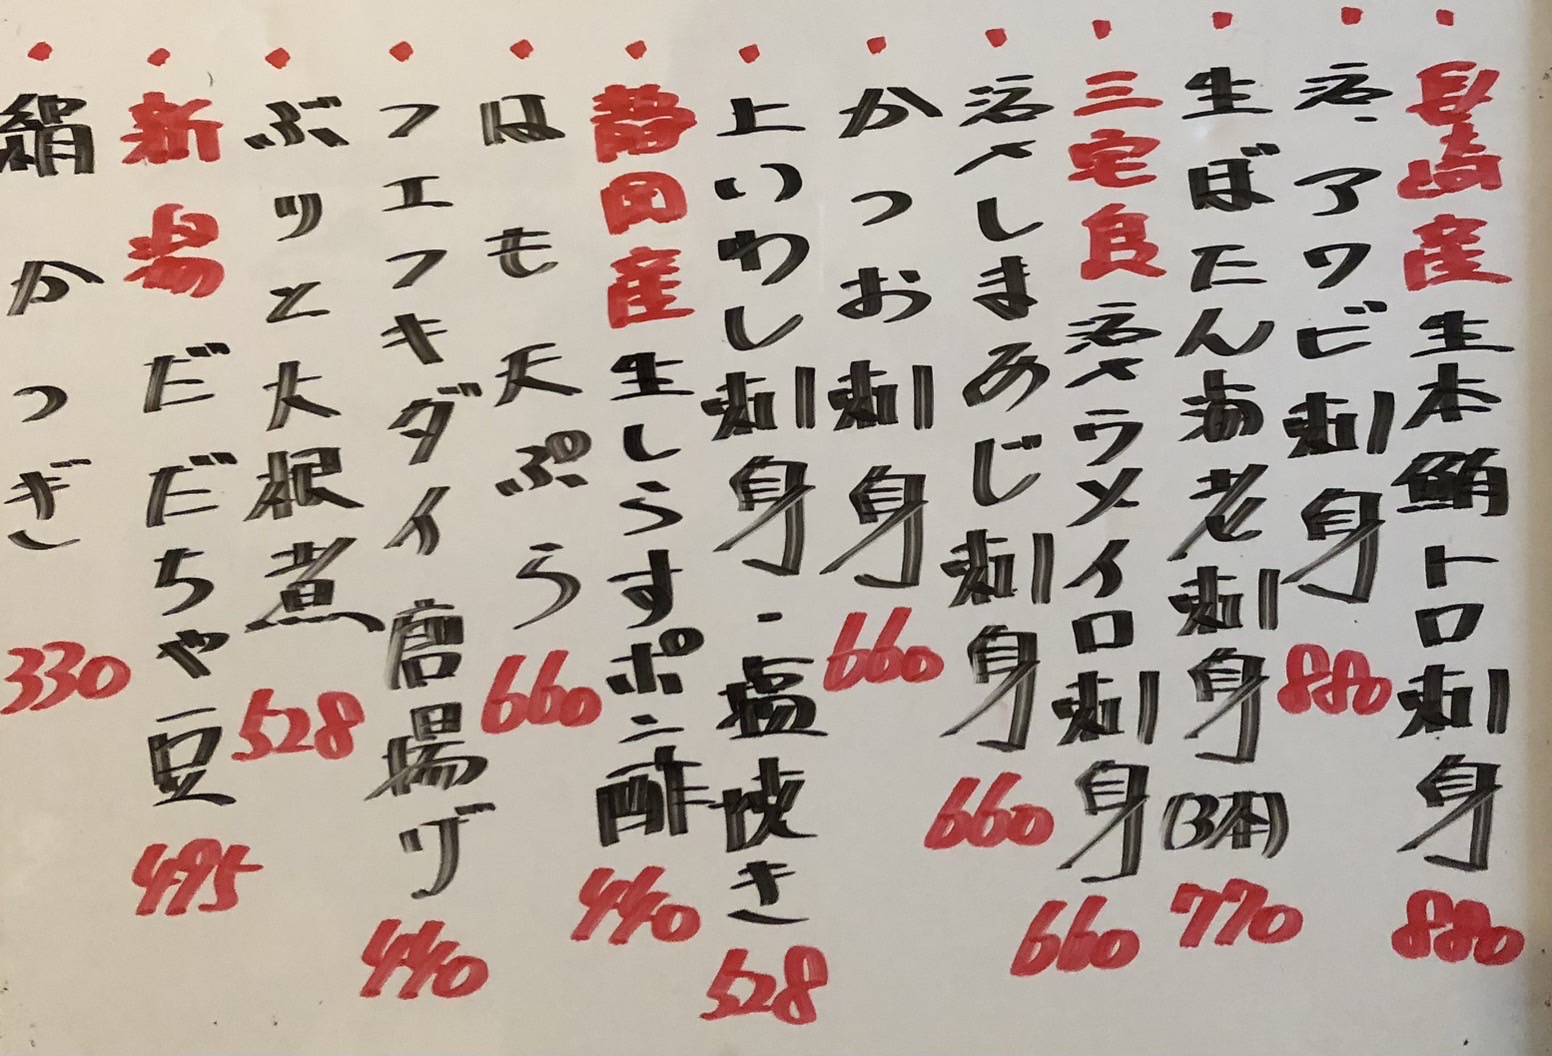 ・長崎産生本鮪トロ刺身 880
・活アワビ刺身 880
・生ぼたん海老刺身(3本) 770
・三宅島活〆ウメイロ刺身 660
・活〆しまあじ刺身 660
・かつお刺身 660
・上いわし刺身・塩焼き 528
・静岡産生しらすポン酢 440
・はも天ぷら 660
・フエフキダイ唐揚げ 440
・ぶりと大根煮 528
・新潟だだちゃ豆 495
・絹かつぎ 330